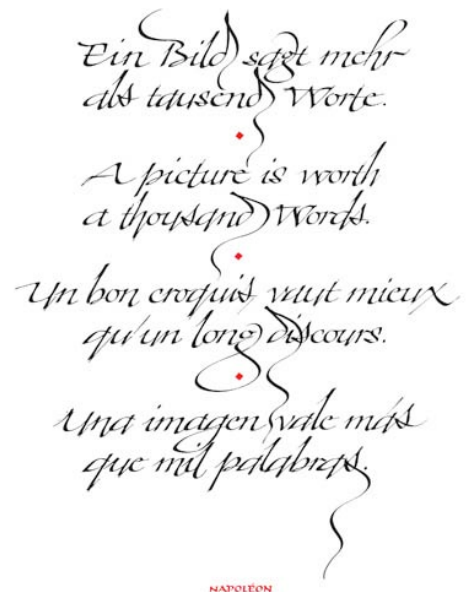 Ein Bild sagt mehr
als tausend Worte.
A picture is worth
a thousand Words.
Un bon croquis vaut mieux
qu'un long discours.
Una imagen vale más
que mil palabras.
NAPOLÉON